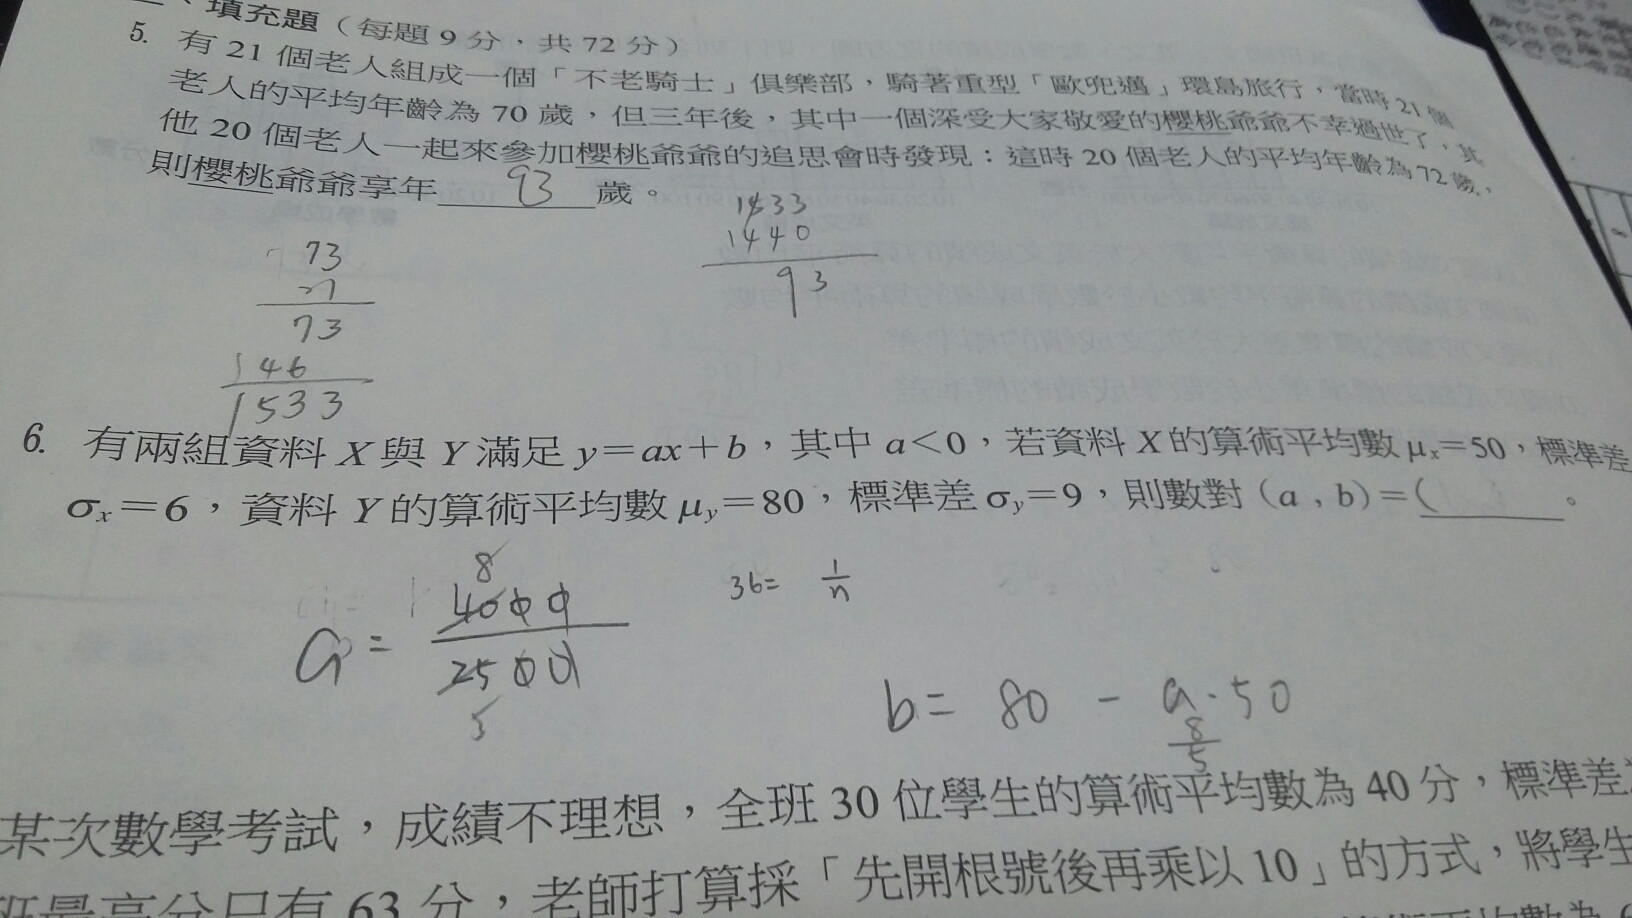 、填充題（每題 9 分，共 72 分）
5. 有 21 個老人組成一個「不老騎士」俱樂部，騎著重型「歐兜邁」環島旅行，當時 21 個
老人的平均年齡為 70 歲，但三年後，其中一個深受大家敬愛的櫻桃爺爺不幸過世了，其
他 20 個老人一起來參加櫻桃爺爺的追思會時發現：這時 20 個老人的平均年齡為 72 歲，
則櫻桃爺爺享年 93 歲。
73
21
73
146
1533
1533
1440
93
6. 有兩組資料 X 與 Y 滿足 y=ax+b，其中 a<0，若資料 X 的算術平均數 μx=50，標準差
σx=6，資料 Y 的算術平均數 μy=80，標準差 σy=9，則數對 (a , b)=( 。
8
a= 4000
2500
5
36= 1/n
b= 80 - a·50
8/5
某次數學考試，成績不理想，全班 30 位學生的算術平均數為 40 分，標準差
班最高分只有 63 分，老師打算採「先開根號後再乘以 10」的方式，將學生